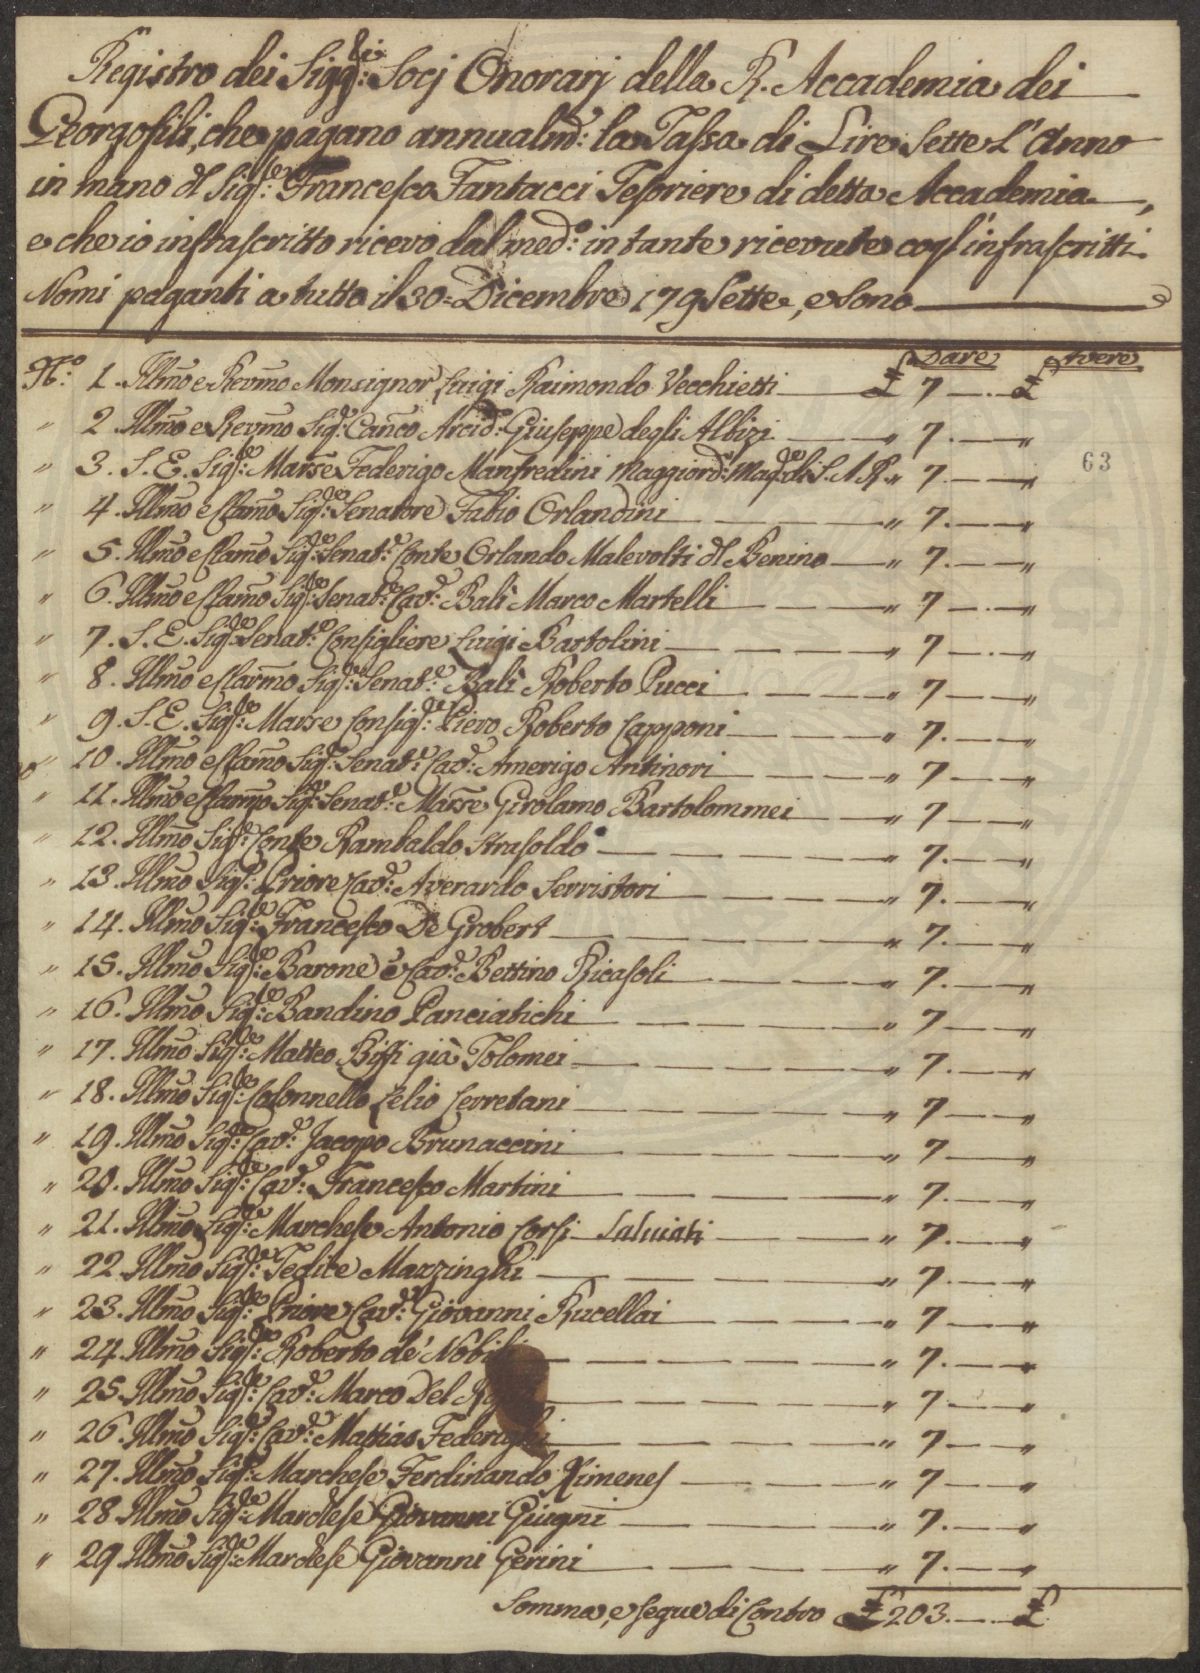 Registro dei Sigg:ri Socj Onorarj della R. Accademia dei
Georgofili, che pagano annualm:e la Tassa di Lire Sette L'Anno
in mano dl Sig:re Francesco Fantacci Tesoriere di detta Accademia,
e che io infrascritto ricevo dal med:o in tante ricevute cogl'infrascritti
Nomi paganti a tutto il 30= Dicembre 179Sette, e sono
Dare Avere
N:o 1. Illmo e Revmo Monsignor Luigi Raimondo Vecchietti £ 7 £
" 2. Illmo e Revmo Sig:re Canco Arcid:o Giuseppe degli Albizi " 7. "
" 3. S. E. Sig:re Marse Federigo Manfredini Maggiord:o Magg:re di S. A. R. " 7. "
63
" 4. Illmo e Clarmo Sig:re Senatore Fabio Orlandini " 7. "
" 5. Illmo e Clarmo Sig:re Senat:e Conte Orlando Malevolti dl Benino " 7. "
" 6. Illmo e Clarmo Sig:re Senat:e Cav:e Balì Marco Martelli " 7 "
" 7. S. E. Sig:re Senat:e Consigliere Luigi Bartolini " 7 "
" 8. Illmo e Clarmo Sig:re Senat:e Balì Roberto Pucci " 7 "
" 9. S. E. Sig:re Marse Consig:re Piero Roberto Capponi " 7. "
" 10. Illmo e Clarmo Sig:re Senat:e Cav:e Amerigo Antinori " 7 "
" 11. Illmo e Clarmo Sig:re Senat:e Marse Girolamo Bartolommei " 7 "
" 12. Illmo Sig:re Conte Rambaldo Strasoldo " 7. "
" 13. Illmo Sig:re Priore Cav:e Averardo Serristori " 7. "
" 14. Illmo Sig:re Francesco De Grobert " 7. "
" 15. Illmo Sig:re Barone e Cav:e Bettino Ricasoli " 7. "
" 16. Illmo Sig:re Bandino Panciatichi " 7 "
" 17. Illmo Sig:re Matteo Biffi già Tolomei " 7. "
" 18. Illmo Sig:re Colonnello Lelio Cerretani " 7 "
" 19. Illmo Sig:re Cav:e Jacopo Brunaccini " 7 "
" 20. Illmo Sig:re Cav:e Francesco Martini " 7. "
" 21. Illmo Sig:re Marchese Antonio Corsi Salviati " 7. "
" 22. Illmo Sig:re Tedice Mazzinghi " 7. "
" 23. Illmo Sig:re Priore Cav:e Giovanni Rucellai " 7 "
" 24. Illmo Sig:re Roberto de' Nobili " 7. "
" 25. Illmo Sig:re Cav:e Marco Del " 7. "
" 26. Illmo Sig:re Cav:e Mattias Federighi " 7 "
" 27. Illmo Sig:re Marchese Ferdinando Ximenes " 7 "
" 28. Illmo Sig:re Marchese Giovanni Giugni " 7. "
" 29. Illmo Sig:re Marchese Giovanni Gerini " 7. "
Somma, e segue di Contro £ 203. £